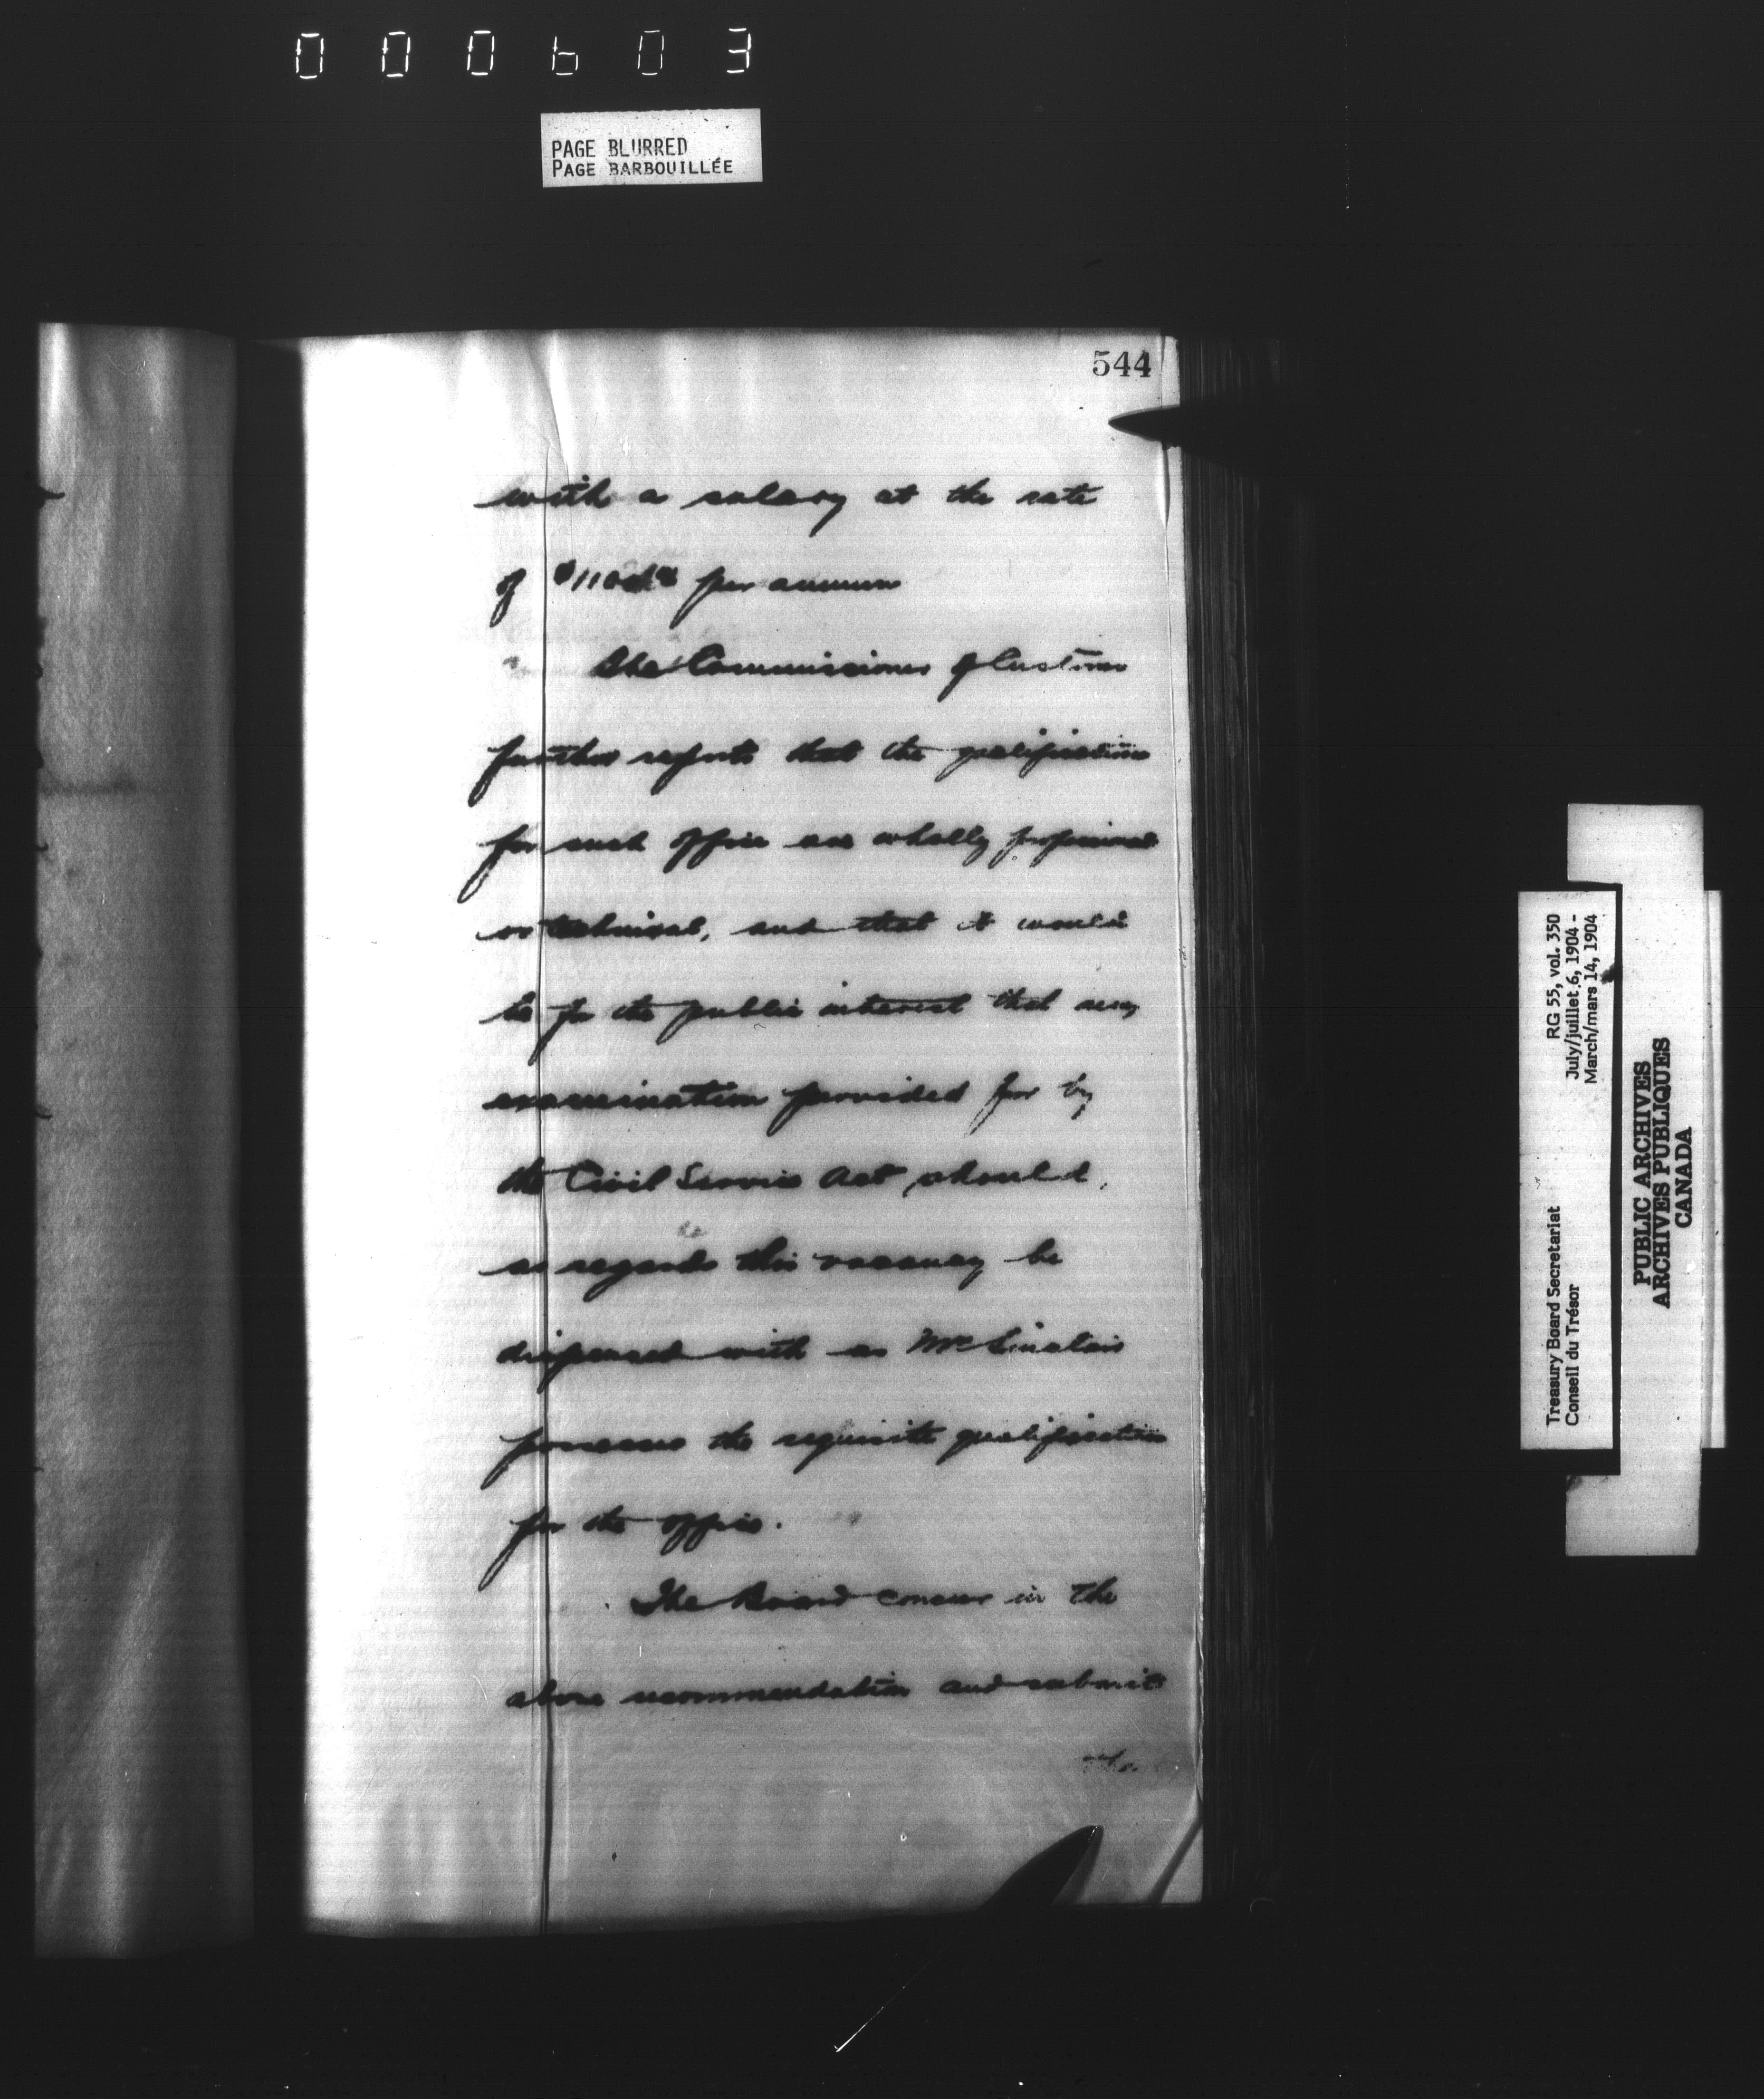 000603
PAGE BLURRED
PAGE BARBOUILLÉE
544
with a salary at the rate
of $1100.00 per annum
The Commissioner of Customs
further reports that the qualifications
for such office are wholly professional
or technical, and that it would
be for the public interest that any
examination provided for by
the Civil Service Act should,
as regards this vacancy be
dispensed with as Mr Sinclair
possesses the requisite qualifications
for the office.
The Board concur in the
above recommendation and submit
the
Treasury Board Secretariat RG 55, vol. 350
Conseil du Trésor July/juillet 6, 1904 -
March/mars 14, 1904
PUBLIC ARCHIVES
ARCHIVES PUBLIQUES
CANADA